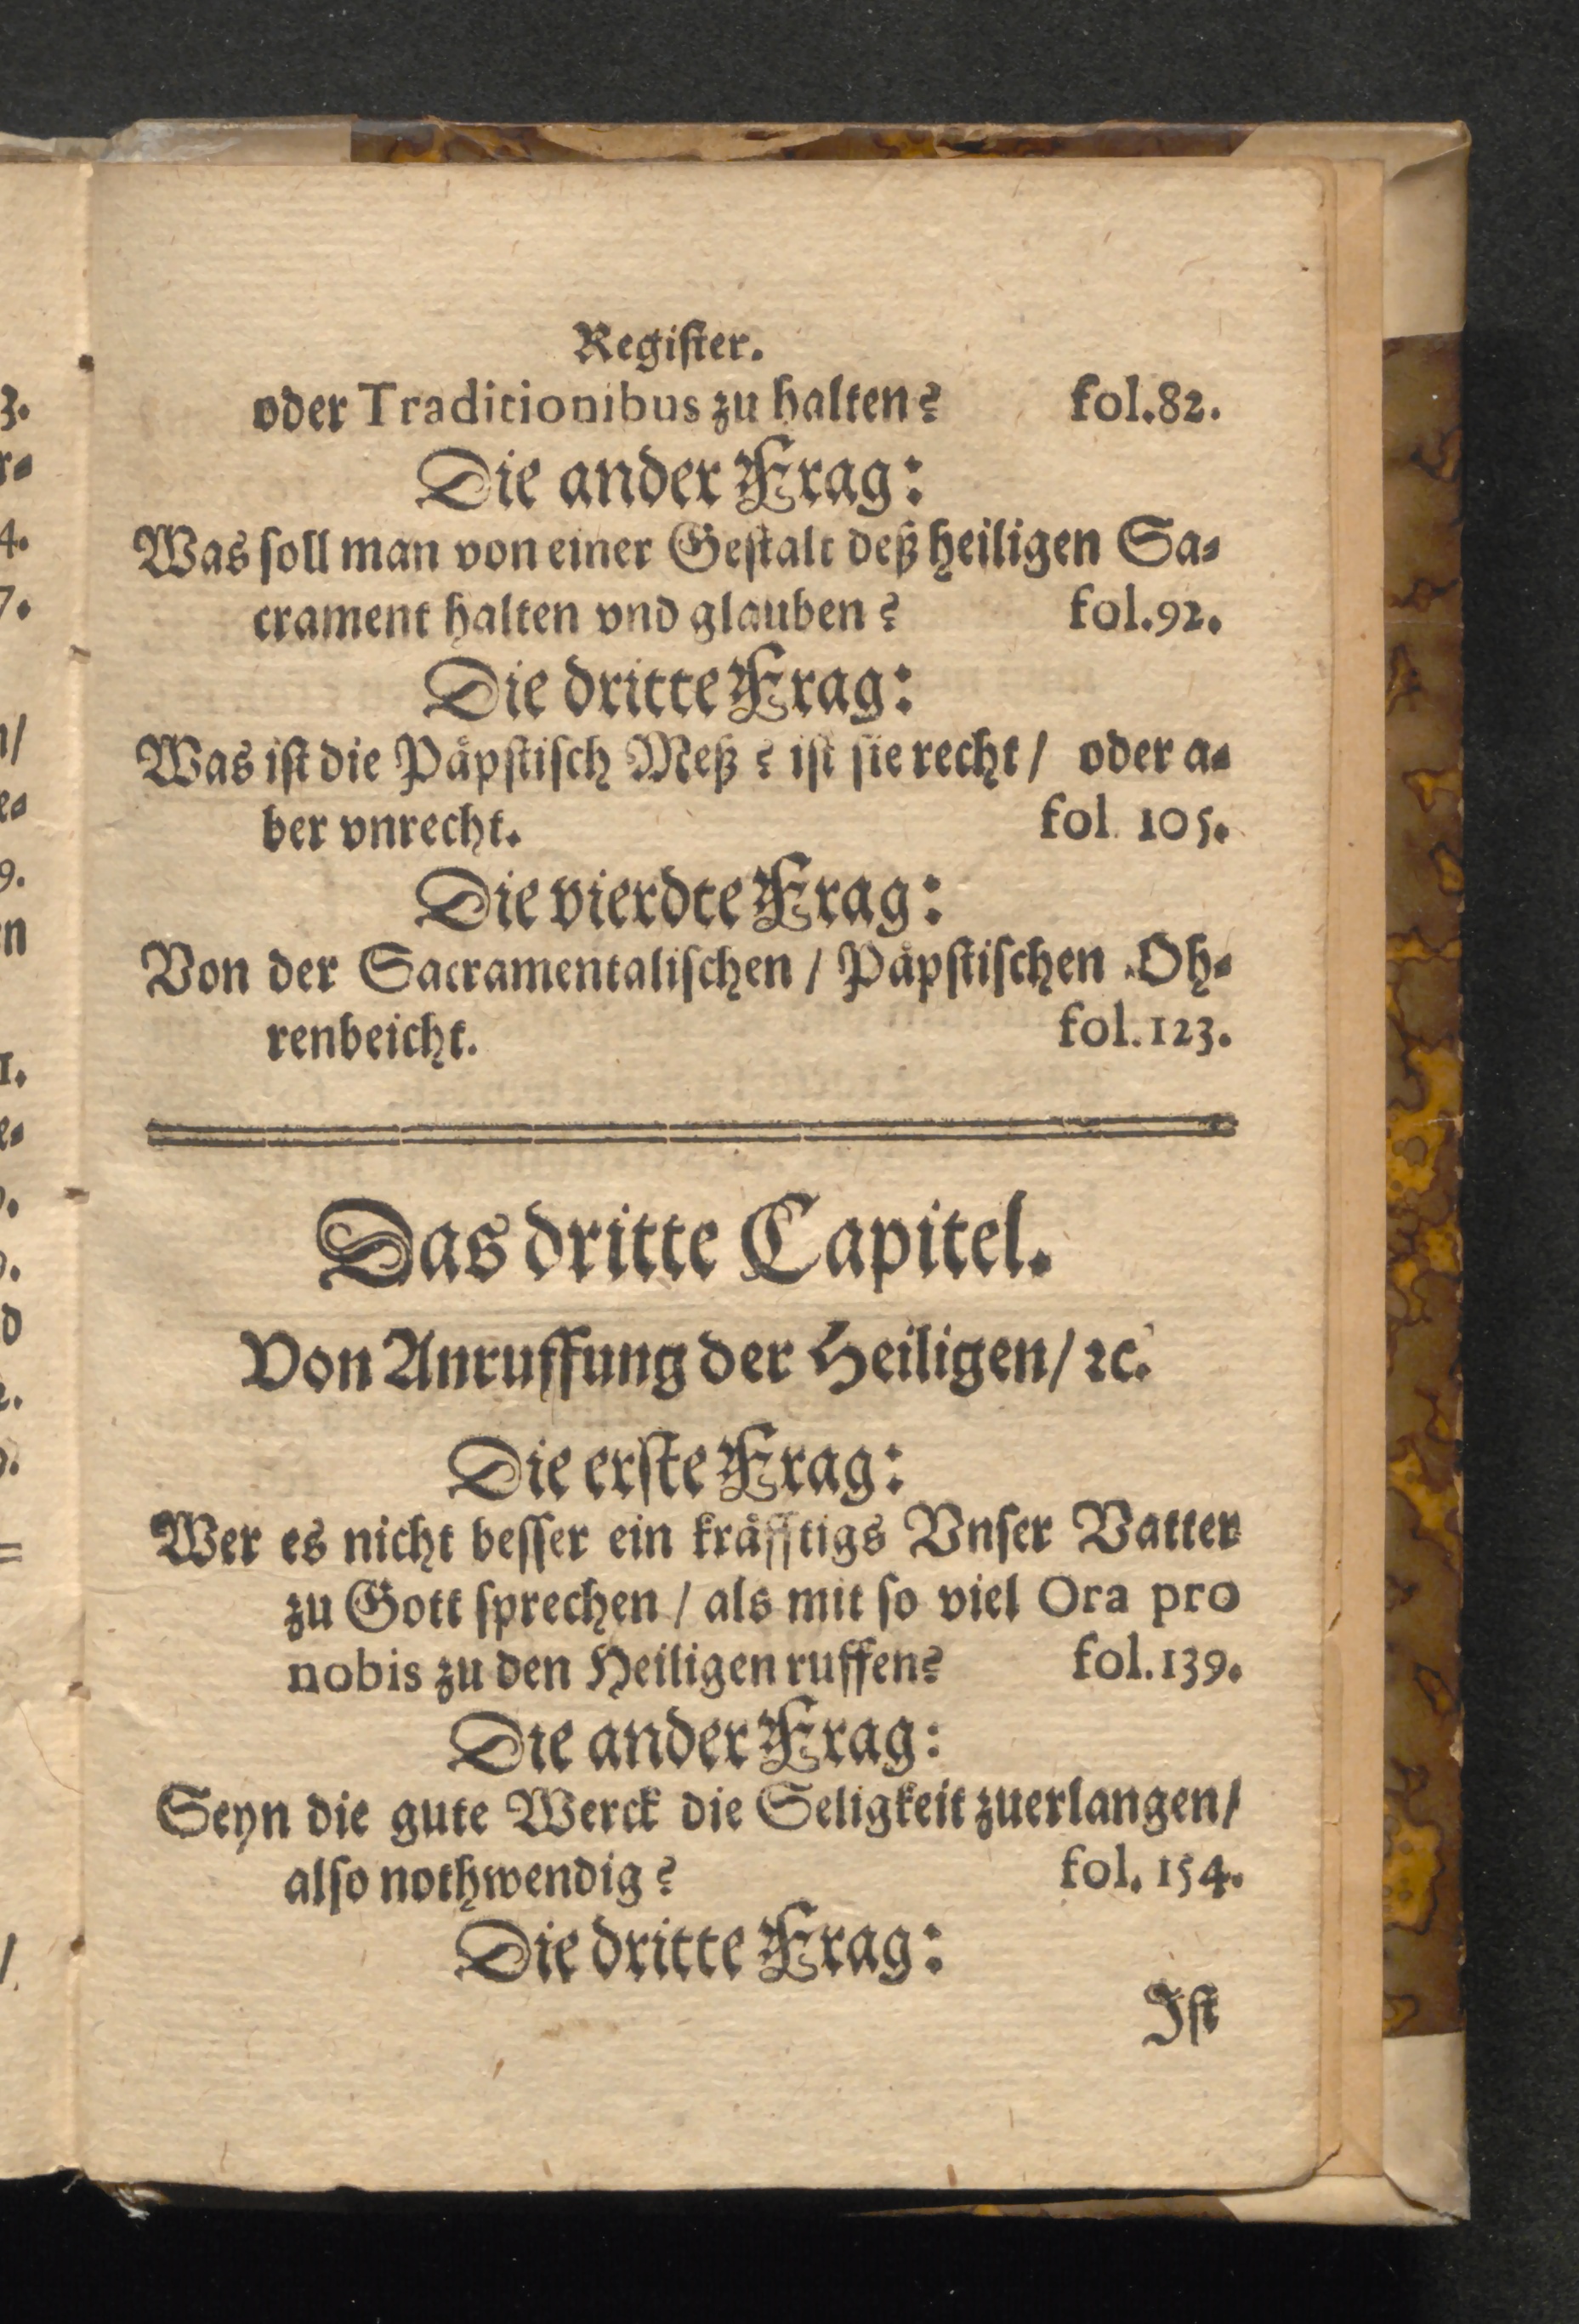 Regiſter.
oder Traditionibus zu halten? fol.82.
Die ander Frag:
Was ſoll man von einer Geſtalt deß heiligen Sa⸗
crament halten vnd glauben? fol.92.
Die dritte Frag:
Was iſt die Paͤpſtiſch Meß? iſt ſie recht / oder a⸗
ber vnrecht. fol. 105.
Die vierdte Frag:
Von der Sacramentaliſchen / Paͤpſtiſchen Oh⸗
renbeicht. fol.123.
Das dritte Capitel.
Von Anruffung der Heiligen / ꝛc.
Die erſte Frag:
Wer es nicht beſſer ein kraͤfftigs Vnſer Vatter
zu Gott ſprechen / als mit ſo viel Ora pro
nobis zu den Heiligen ruffen? fol.139.
Die ander Frag:
Seyn die gute Werck die Seligkeit zuerlangen /
alſo nothwendig? fol. 154.
Die dritte Frag:
Iſt